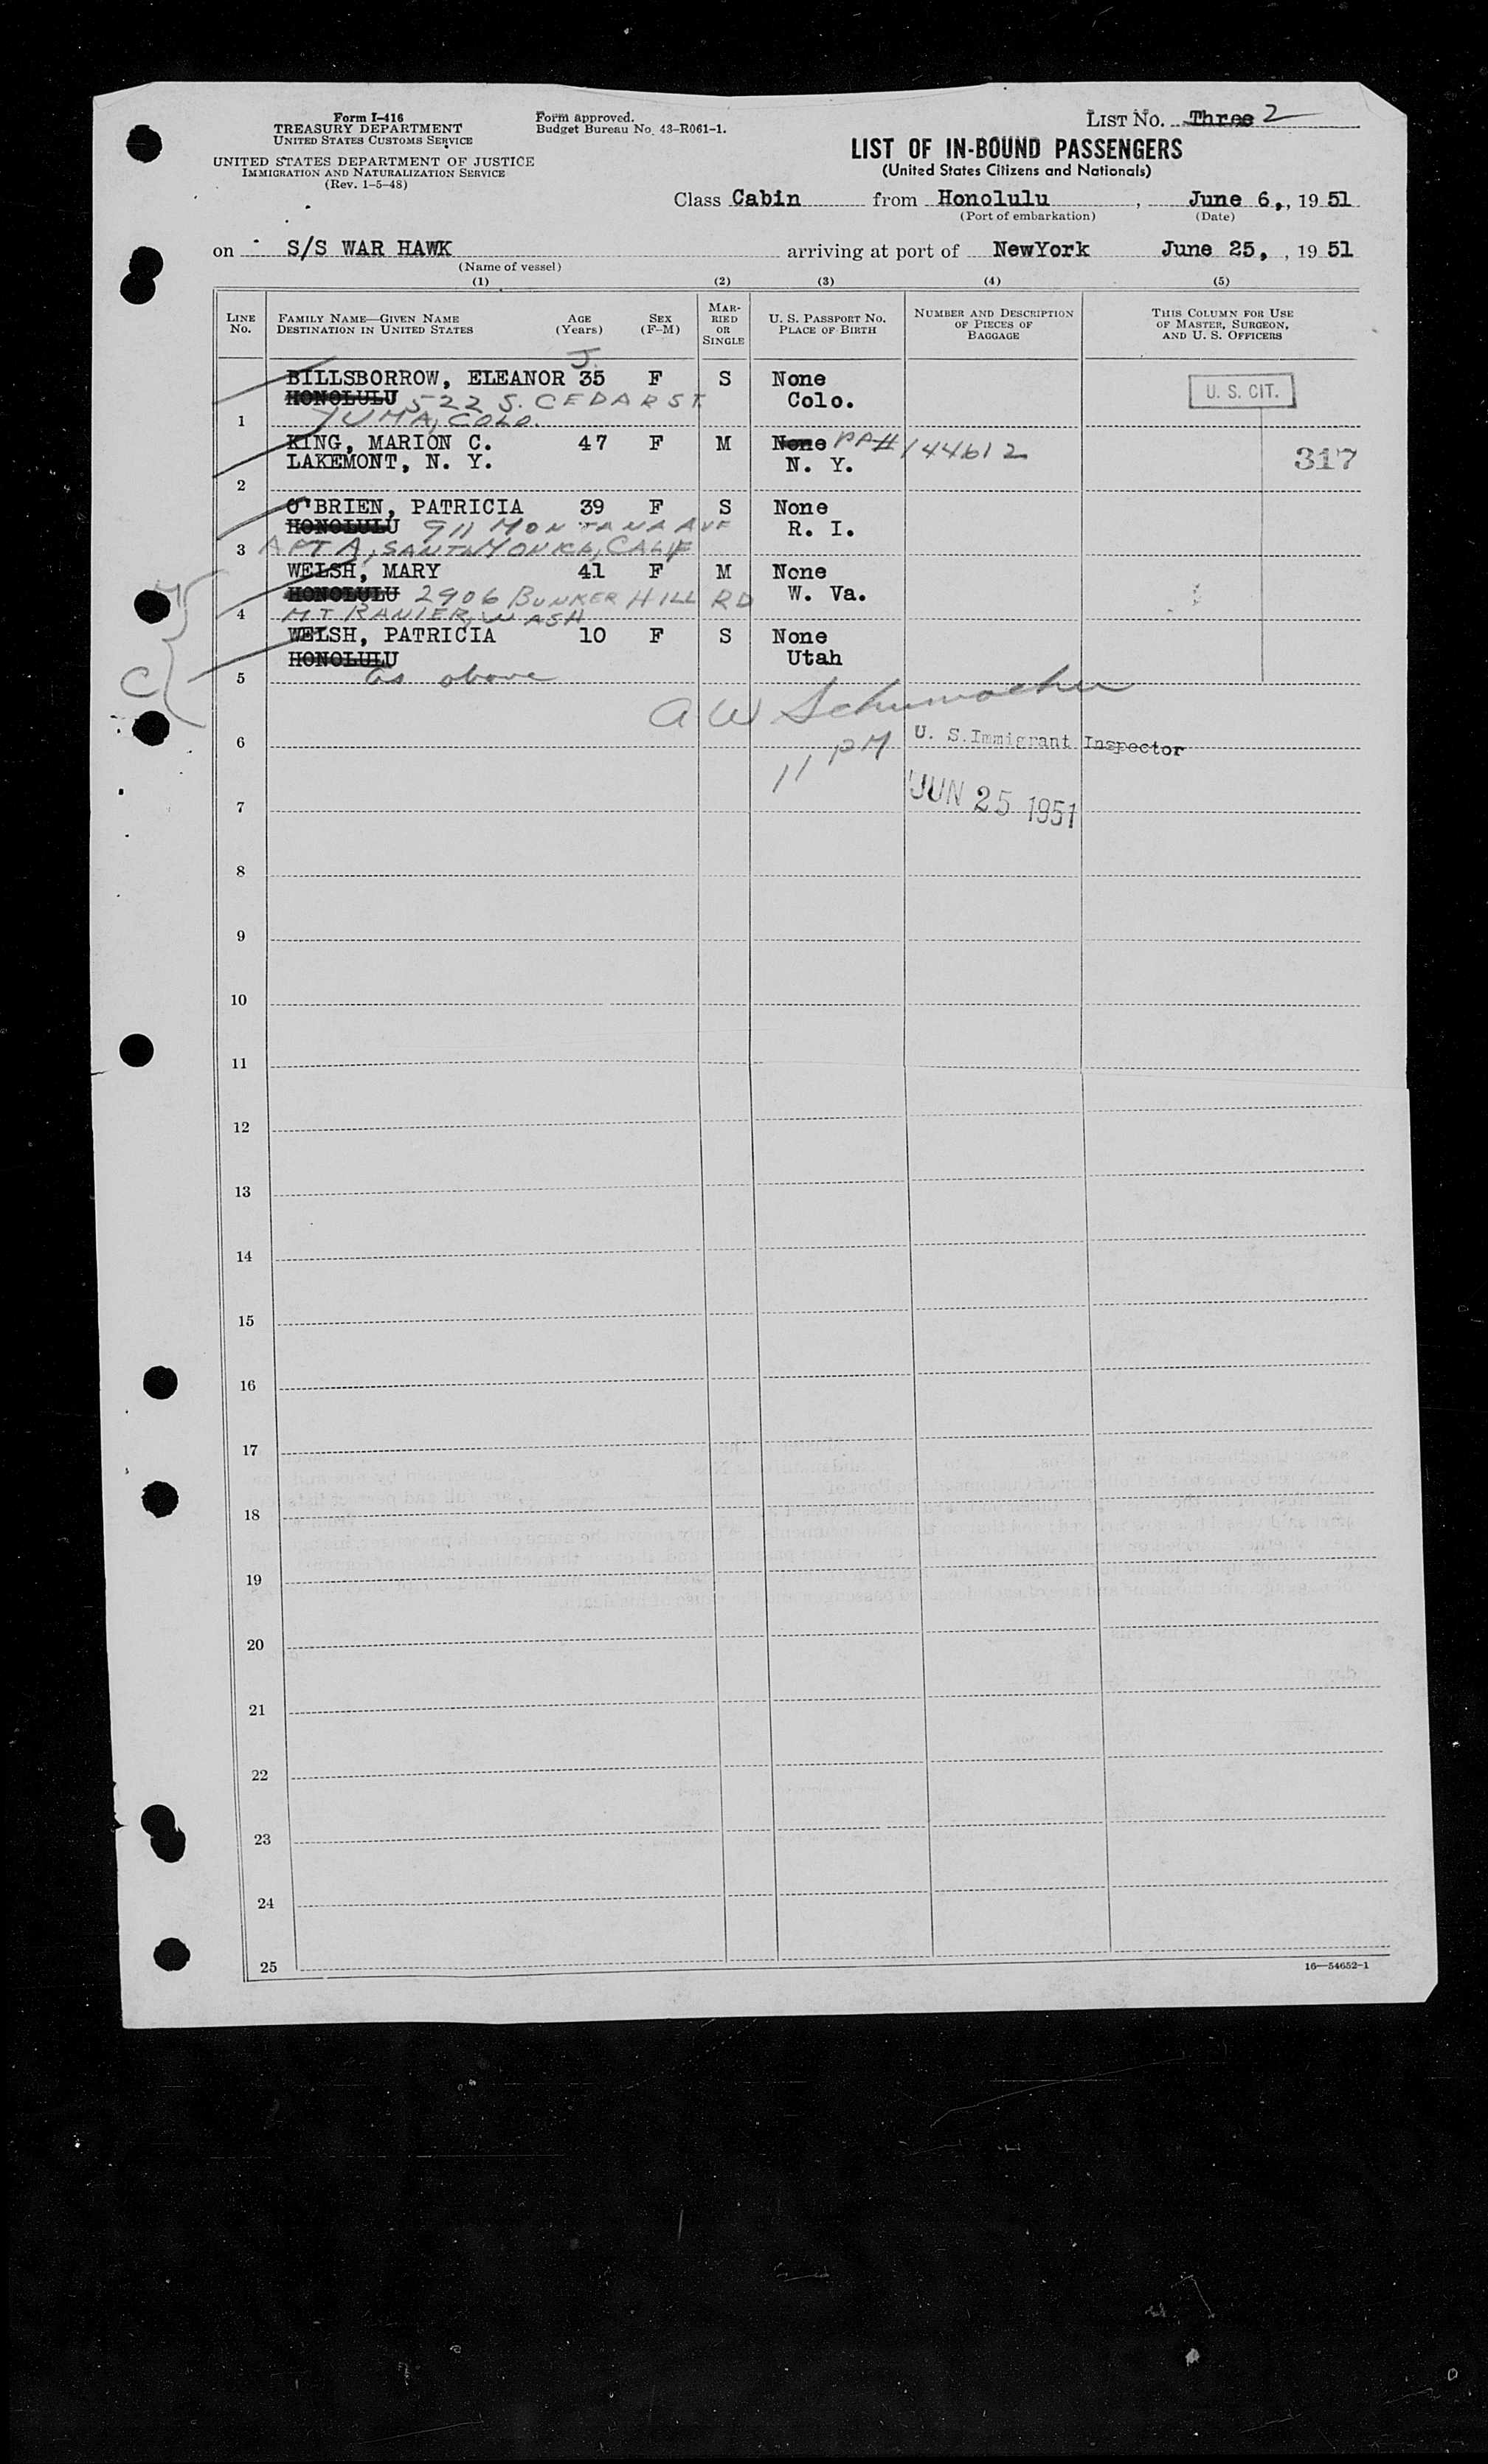 Form I-416
TREASURY DEPARTMENT
UNITED STATES CUSTOMS SERVICE
UNITED STATES DEPARTMENT OF JUSTICE
IMMIGRATION AND NATURALIZATION SERVICE
(Rev. 1-5-48)
Form approved.
Budget Bureau No. 43-R061-1.
LIST NO. Three 2
LIST OF IN-BOUND PASSENGERS
(United States Citizens and Nationals)
Class Cabin from Honolulu, June 6, , 19 51
(Port of embarkation) (Date)
on S/S WAR HAWK arriving at port of NewYork June 25, , 19 51
(Name of vessel)
(1) (2) (3) (4) (5)
LINE No. FAMILY NAME—GIVEN NAME DESTINATION IN UNITED STATES AGE (Years) SEX (F-M) MARRIED OR SINGLE U. S. PASSPORT NO. PLACE OF BIRTH NUMBER AND DESCRIPTION OF PIECES OF BAGGAGE THIS COLUMN FOR USE OF MASTER, SURGEON, AND U. S. OFFICERS
J.
BILLSBORROW, ELEANOR 35 F S None U. S. CIT.
HONOLULU 522 S. CEDAR ST Colo.
1 YUMA, COLO.
KING, MARION C. 47 F M None PP# 144612 317
LAKEMONT, N. Y. N. Y.
2
O'BRIEN, PATRICIA 39 F S None
HONOLULU 911 MONTANA AVE R. I.
3 APT A, SANTA MONICA, CALIF
WELSH, MARY 41 F M None
HONOLULU 2906 BUNKER HILL RD W. Va.
4 MT RANIER, WASH
WELSH, PATRICIA 10 F S None
HONOLULU Utah
5 as above
C
A W Schumacher
6 U. S. Immigrant Inspector
11 PM
7 JUN 25 1951
8
9
10
11
12
13
14
15
16
17
18
19
20
21
22
23
24
25
16—54652-1